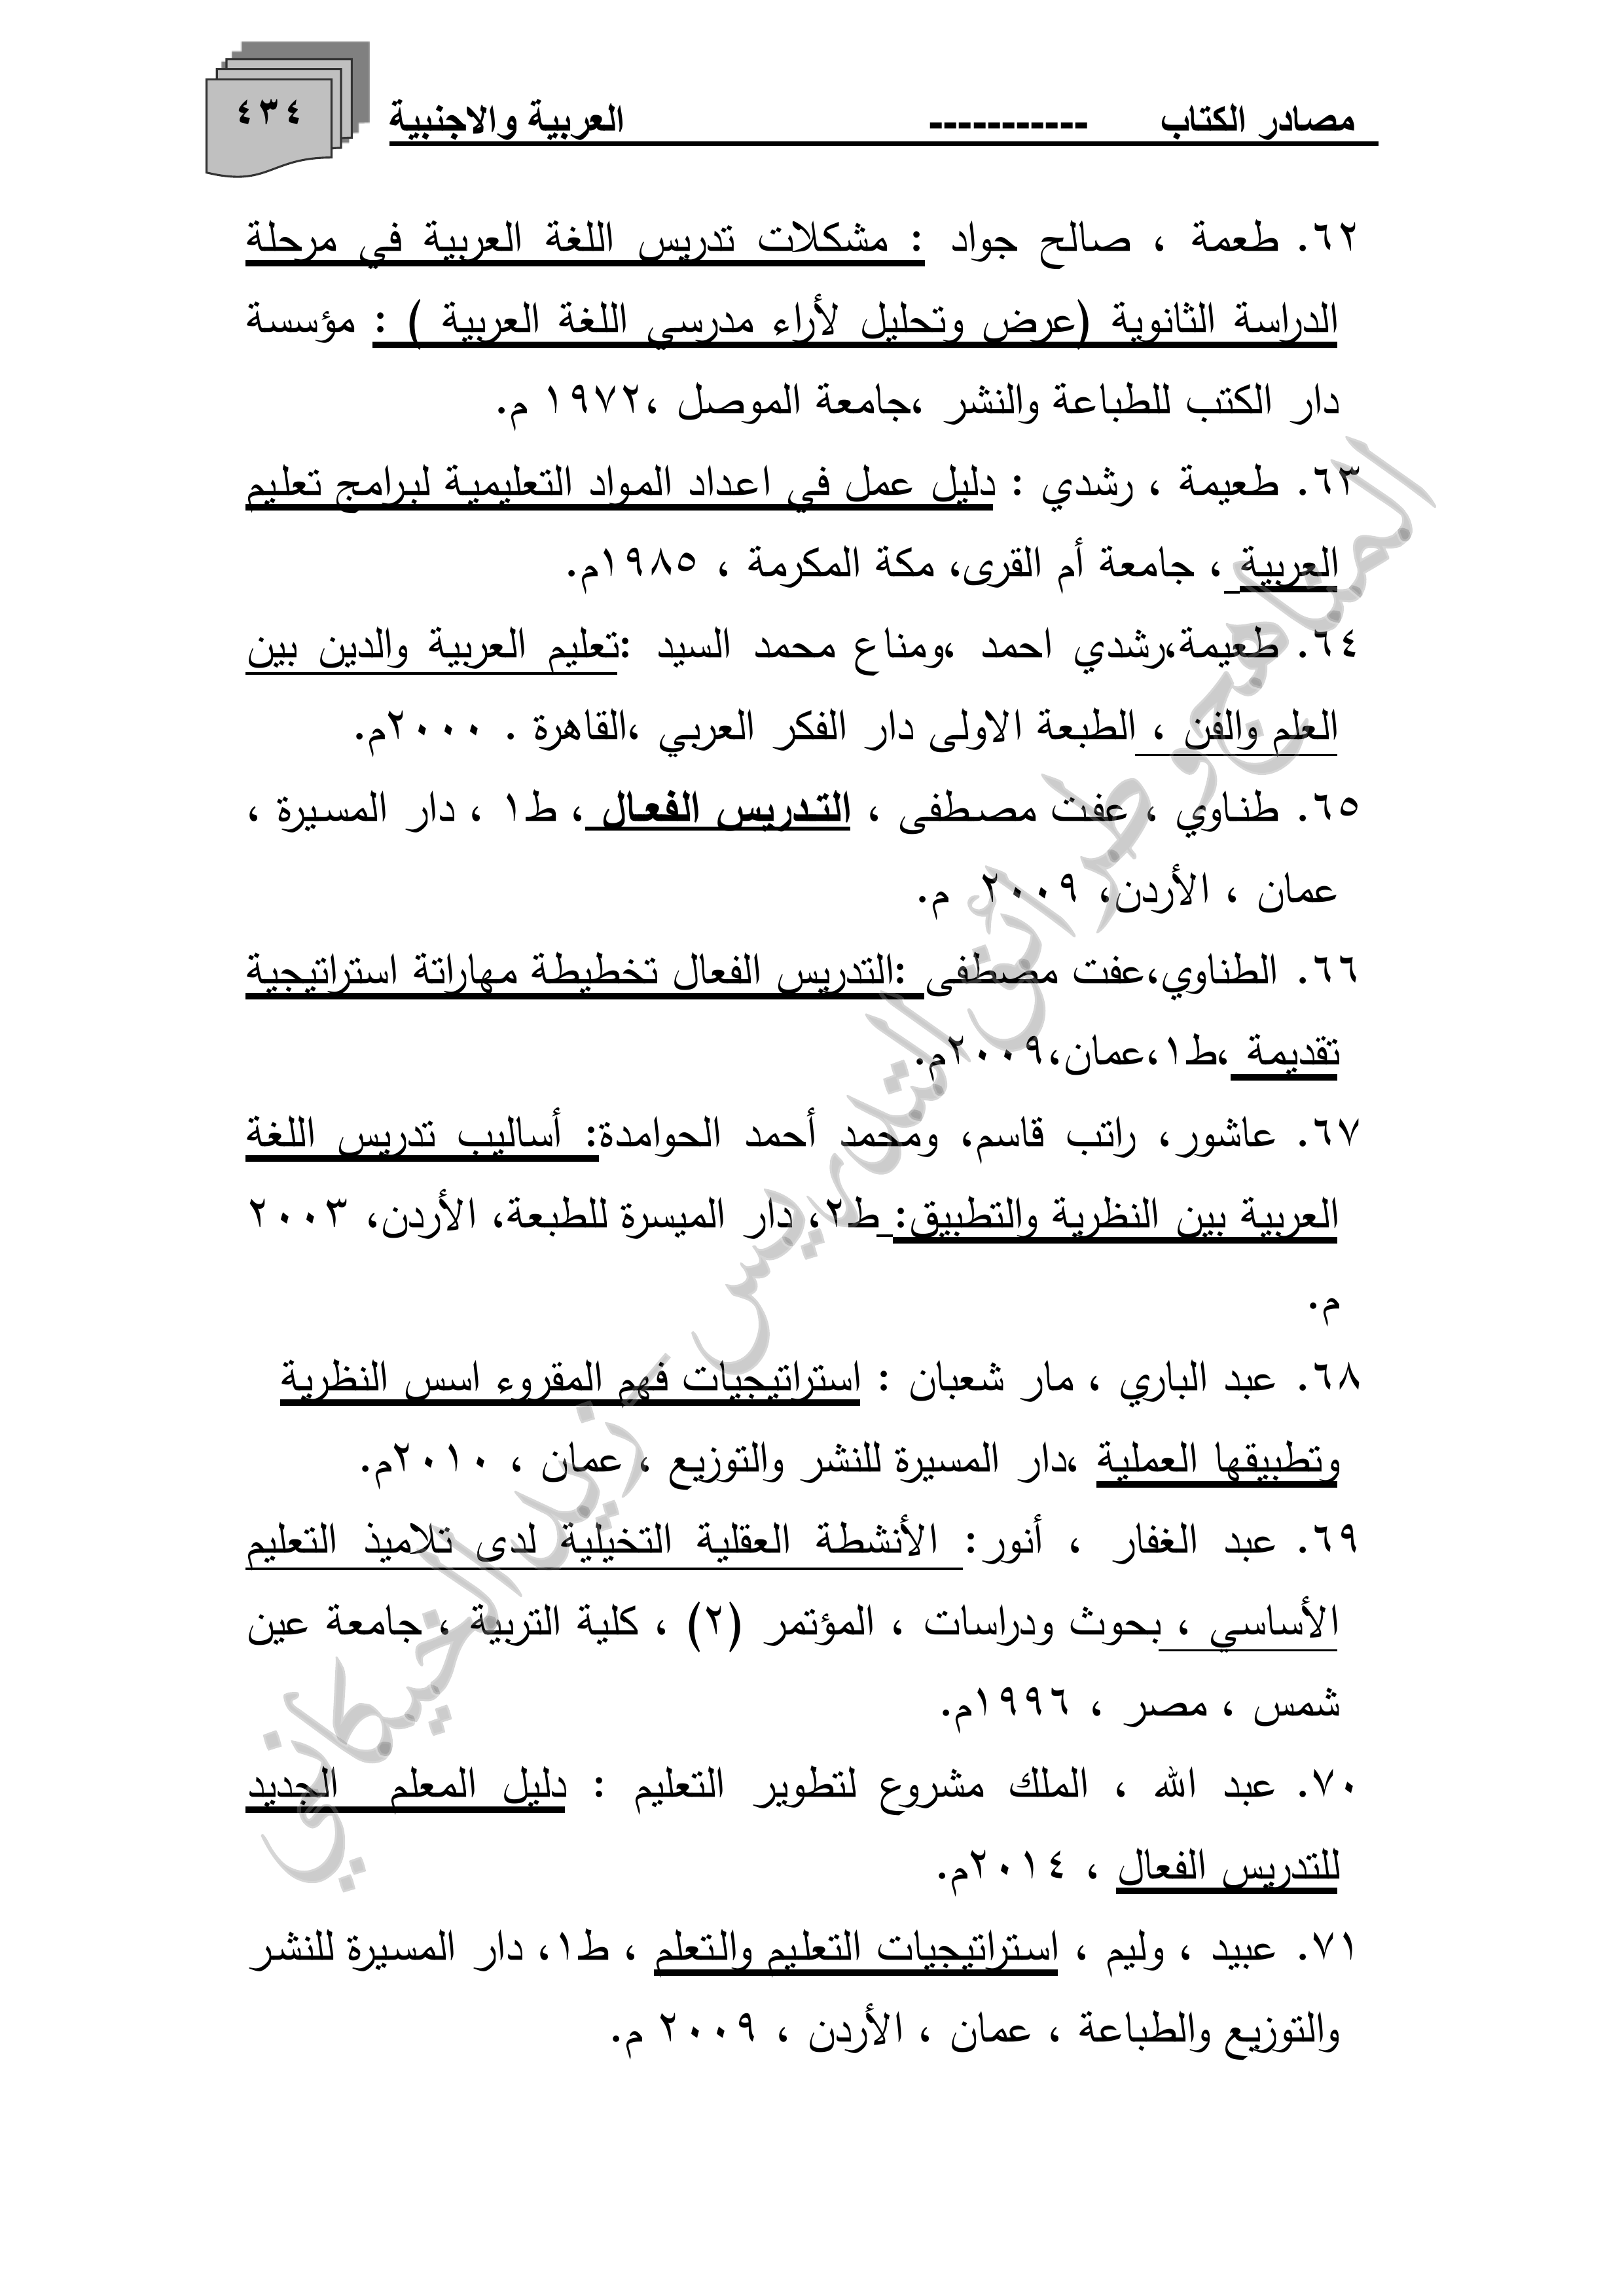 مصادر الكتاب ----------- العربية والاجنبية
٤٣٤
٦٢. طعمة ، صالح جواد : مشكلات تدريس اللغة العربية في مرحلة
الدراسة الثانوية (عرض وتحليل لأراء مدرسي اللغة العربية ) : مؤسسة
دار الكتب للطباعة والنشر ،جامعة الموصل ،١٩٧٢ م.
٦٣. طعيمة ، رشدي : دليل عمل في اعداد المواد التعليمية لبرامج تعليم
العربية ، جامعة أم القرى، مكة المكرمة ، ١٩٨٥م.
٦٤. طعيمة،رشدي احمد ،ومناع محمد السيد :تعليم العربية والدين بين
العلم والفن ، الطبعة الاولى دار الفكر العربي ،القاهرة . ٢٠٠٠م.
٦٥. طناوي ، عفت مصطفى ، التدريس الفعال ، ط١ ، دار المسيرة ،
عمان ، الأردن، ٢٠٠٩ م.
٦٦. الطناوي،عفت مصطفى :التدريس الفعال تخطيطة مهاراتة استراتيجية
تقديمة ،ط١،عمان،٢٠٠٩م.
٦٧. عاشور، راتب قاسم، ومحمد أحمد الحوامدة: أساليب تدريس اللغة
العربية بين النظرية والتطبيق: ط٢، دار الميسرة للطبعة، الأردن، ٢٠٠٣
م.
٦٨. عبد الباري ، مار شعبان : استراتيجيات فهم المقروء اسس النظرية
وتطبيقها العملية ،دار المسيرة للنشر والتوزيع ، عمان ، ٢٠١٠م.
٦٩. عبد الغفار ، أنور: الأنشطة العقلية التخيلية لدى تلاميذ التعليم
الأساسي ، بحوث ودراسات ، المؤتمر (٢) ، كلية التربية ، جامعة عين
شمس ، مصر ، ١٩٩٦م.
٧٠. عبد الله ، الملك مشروع لتطوير التعليم : دليل المعلم الجديد
للتدريس الفعال ، ٢٠١٤م.
٧١. عبيد ، وليم ، استراتيجيات التعليم والتعلم ، ط١، دار المسيرة للنشر
والتوزيع والطباعة ، عمان ، الأردن ، ٢٠٠٩ م.
المناهج وطرائق التدريس - زيد الخيكاني